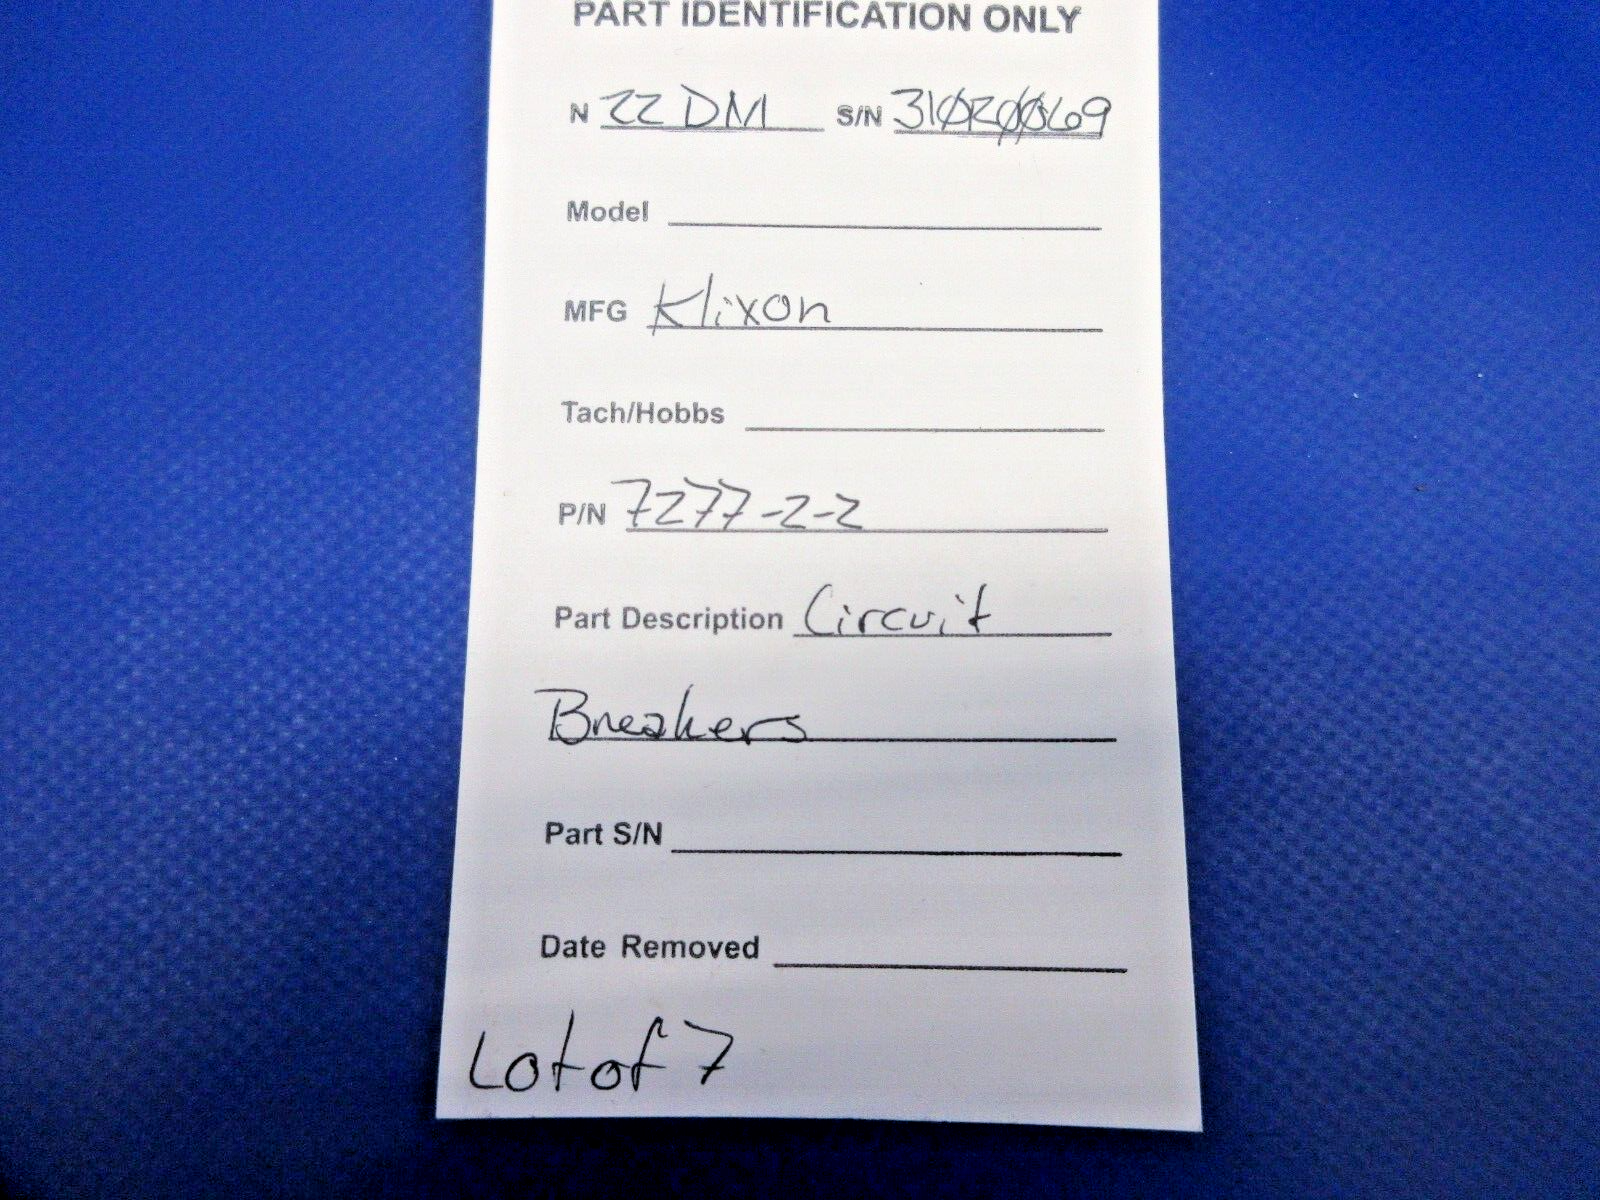 PART IDENTIFICATION ONLY
N 22 DM S/N 310R0069
Model
MFG Klixon
Tach/Hobbs
P/N 7277-2-2
Part Description Circuit
Breakers
Part S/N
Date Removed
Lot of 7